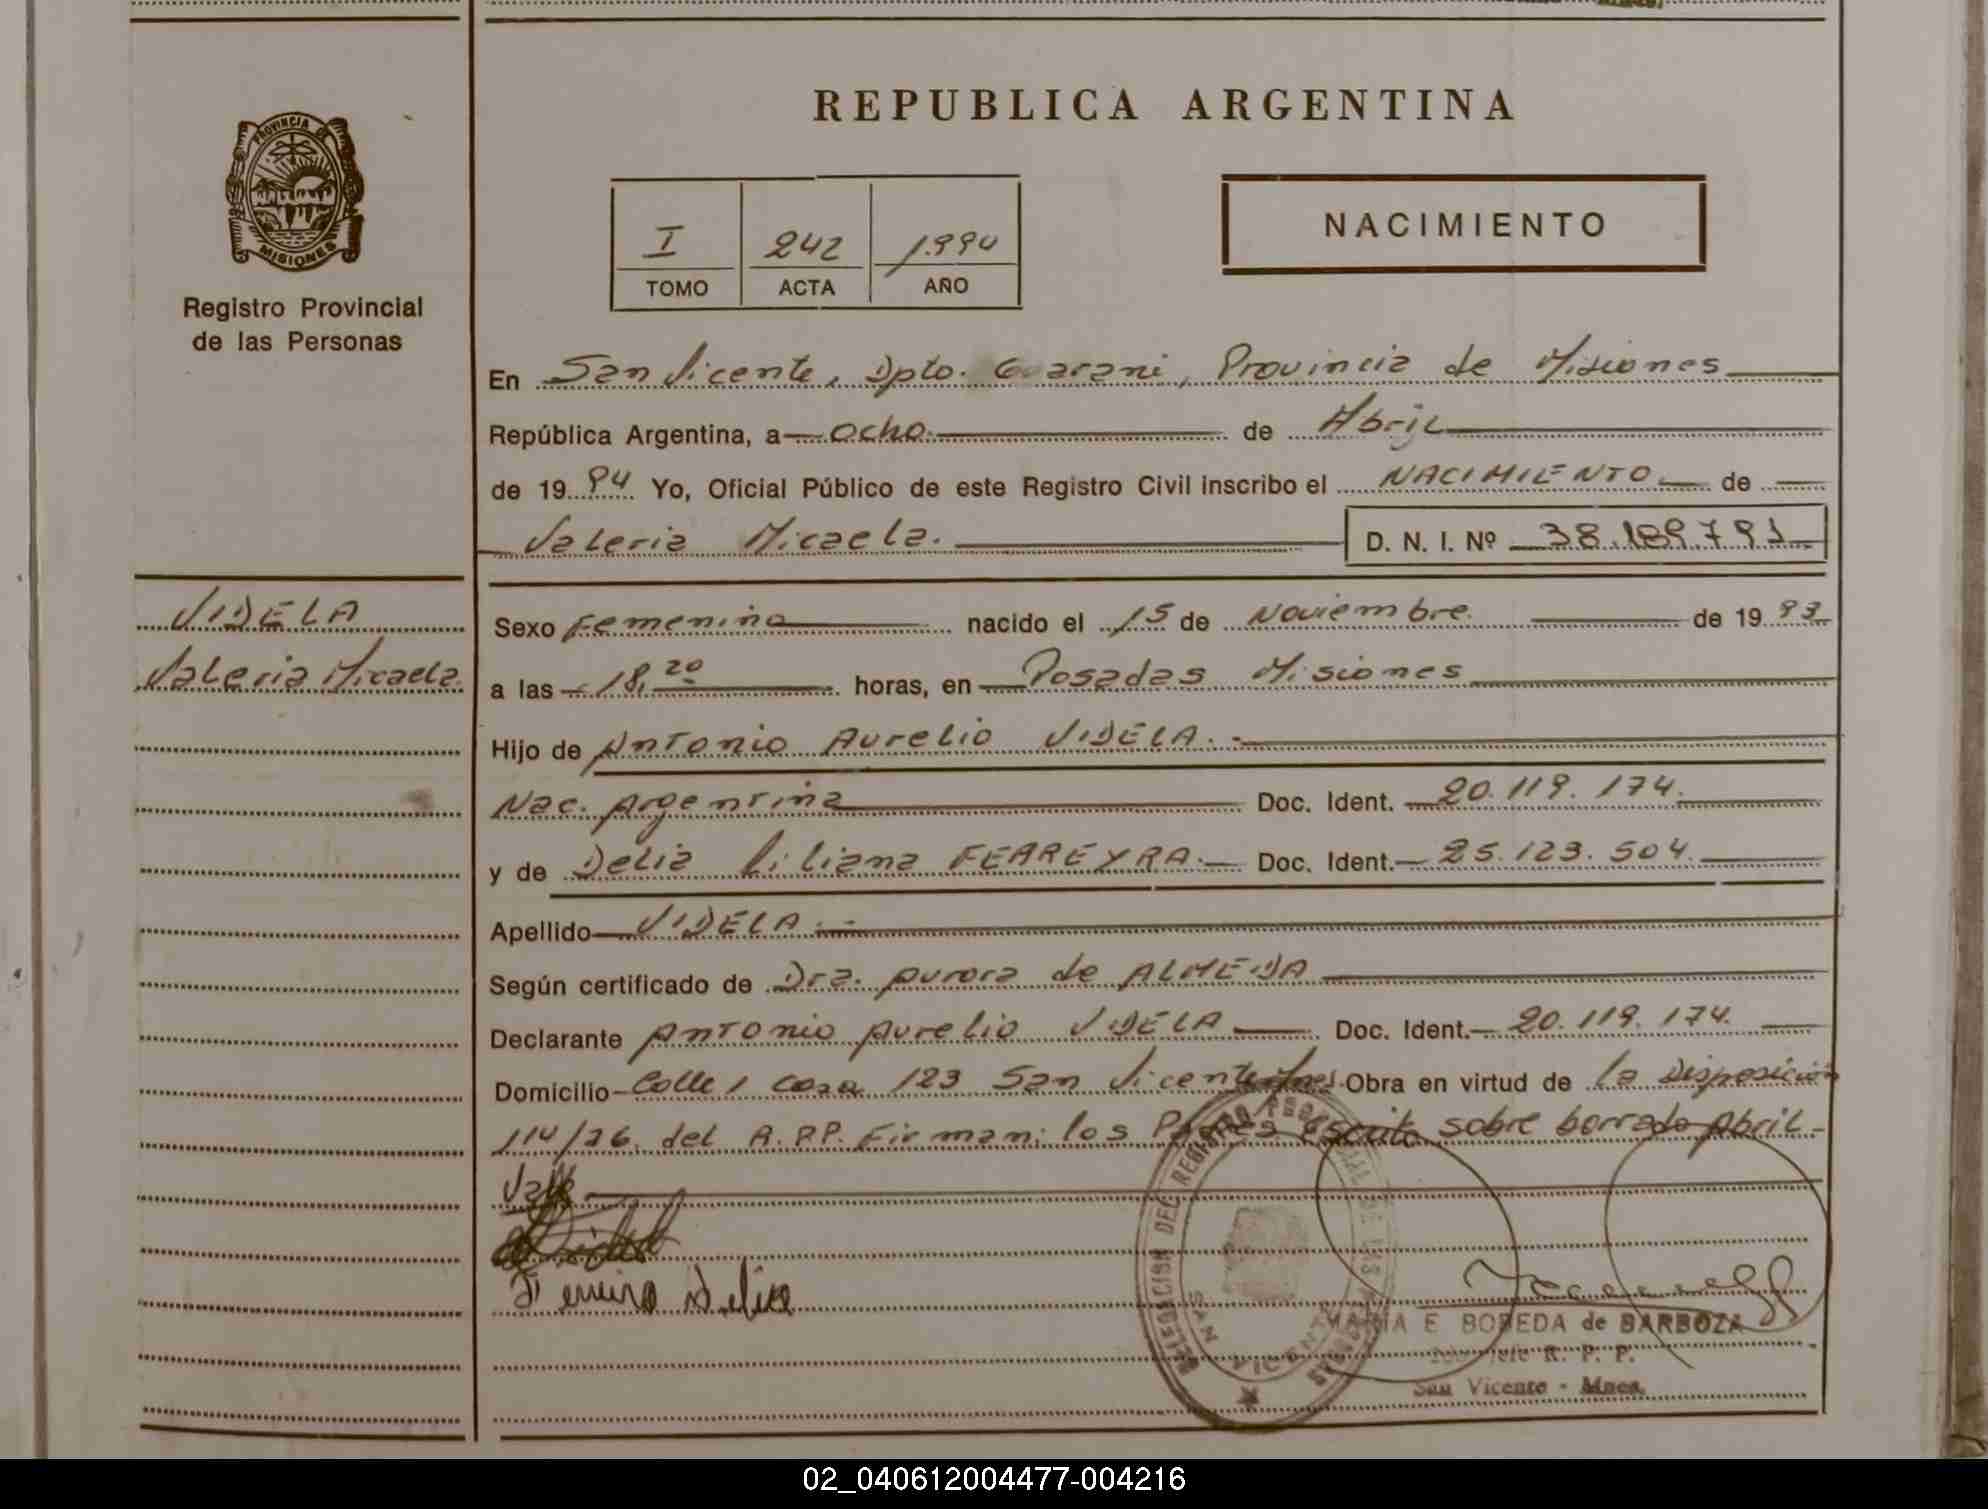 REPUBLICA ARGENTINA
PROVINCIA DE
MISIONES
Registro Provincial
de las Personas
I 242 1.994
TOMO ACTA AÑO
NACIMIENTO
En San Vicente, Dpto. Guarani, Provincia de Misiones
República Argentina, a ocho de Abril
de 1994 Yo, Oficial Público de este Registro Civil inscribo el NACIMIENTO de
Valeria Micaela. D. N. I. Nº 38.189.791
VIDELA
Valeria Micaela
Sexo Femenino nacido el 15 de Noviembre. de 1993
a las 18,20 horas, en Posadas Misiones
Hijo de Antonio Aurelio VIDELA.-
Nac. Argentina Doc. Ident. 20.119.174.
y de Delia Liliana FERREYRA.- Doc. Ident. 25.123.504.
Apellido VIDELA.-
Según certificado de Dra. Aurora de ALMEDA
Declarante Antonio Aurelio VIDELA Doc. Ident. 20.119.174.
Domicilio Calle 1 Casa 123 San Vicente Mnes. Obra en virtud de la Disposición
114/76. del R.P.P. Firman: los Padres escrito sobre borrado Abril-
Vale
Ferreira Delia
DELEGACION DEL REGISTRO PROVINCIAL DE LAS PERSONAS
SAN VICENTE
MARIA E BOBEDA de BARBOZA
Jefe R. P. P.
San Vicente - Mnes.
02_040612004477-004216